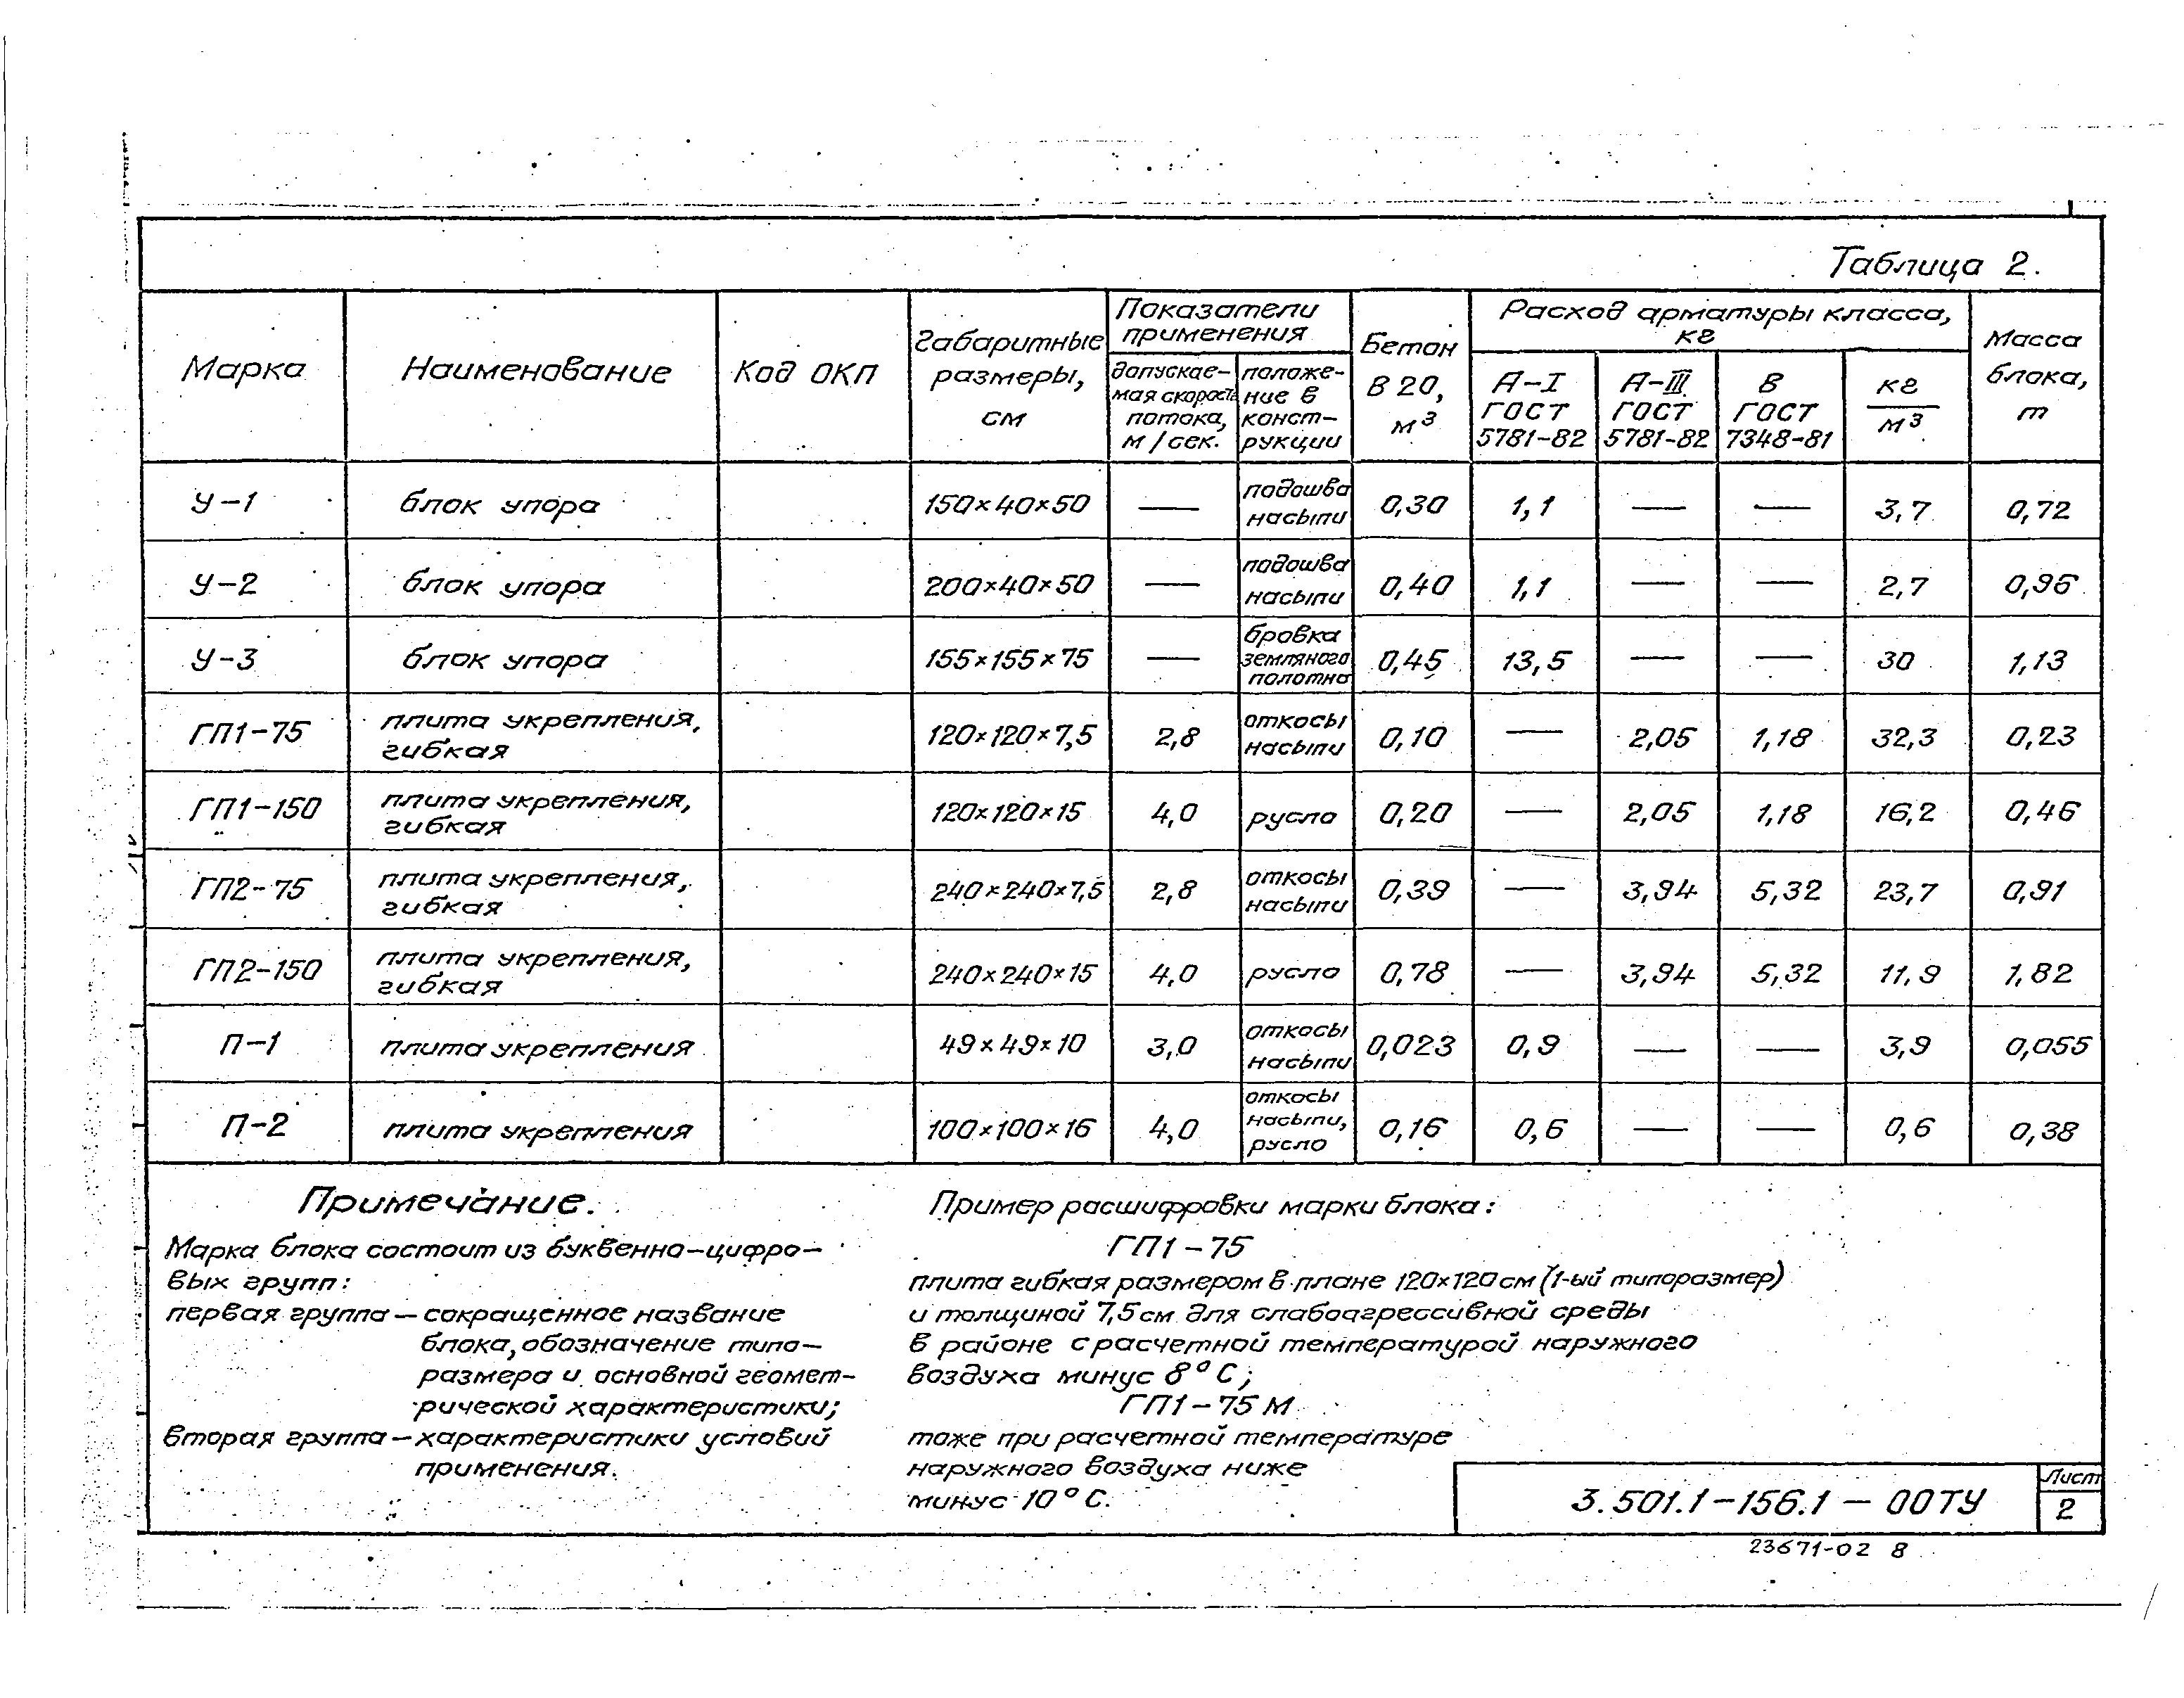 Таблица 2.
Марка
Наименование
Код ОКП
Габаритные
размеры,
см
Показатели
применения
допускае-
мая скорость
потока,
м/сек.
положе-
ние в
конст-
рукции
Бетон
В 20,
м³
Расход арматуры класса,
кг
А-I
ГОСТ
5781-82
А-III
ГОСТ
5781-82
В
ГОСТ
7348-81
кг
м³
Масса
блока,
т
У-1 блок упора 150×40×50 — подошва насыпи 0,30 1,1 — — 3,7 0,72
У-2 блок упора 200×40×50 — подошва насыпи 0,40 1,1 — — 2,7 0,96
У-3 блок упора 155×155×75 — бровка земляного полотна 0,45 13,5 — — 30 1,13
ГП1-75 плита укрепления, гибкая 120×120×7,5 2,8 откосы насыпи 0,10 — 2,05 1,18 32,3 0,23
ГП1-150 плита укрепления, гибкая 120×120×15 4,0 русло 0,20 — 2,05 1,18 16,2 0,46
ГП2-75 плита укрепления, гибкая 240×240×7,5 2,8 откосы насыпи 0,39 — 3,94 5,32 23,7 0,91
ГП2-150 плита укрепления, гибкая 240×240×15 4,0 русло 0,78 — 3,94 5,32 11,9 1,82
П-1 плита укрепления 49×49×10 3,0 откосы насыпи 0,023 0,9 — — 3,9 0,055
П-2 плита укрепления 100×100×16 4,0 откосы насыпи, русло 0,16 0,6 — — 0,6 0,38
Примечание.
Марка блока состоит из буквенно-цифро-
вых групп:
первая группа — сокращенное название
блока, обозначение типо-
размера и основной геомет-
рической характеристики;
вторая группа — характеристики условий
применения.
Пример расшифровки марки блока:
ГП1-75
плита гибкая размером в плане 120×120 см (1-ый типоразмер)
и толщиной 7,5 см для слабоагрессивной среды
в районе с расчетной температурой наружного
воздуха минус 8°С;
ГП1-75М
тоже при расчетной температуре
наружного воздуха ниже
минус 10°С.
3.501.1-156.1-00ТУ
Лист
2
23671-02 8